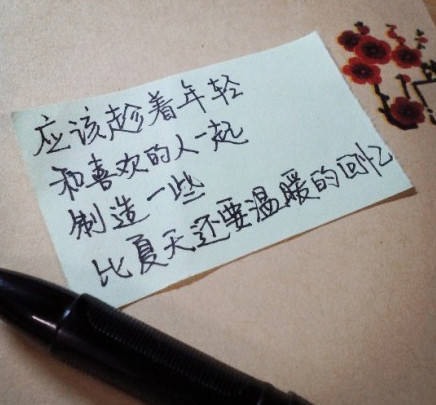 应该趁着年轻
和喜欢的人一起
制造一些
比夏天还要温暖的回忆